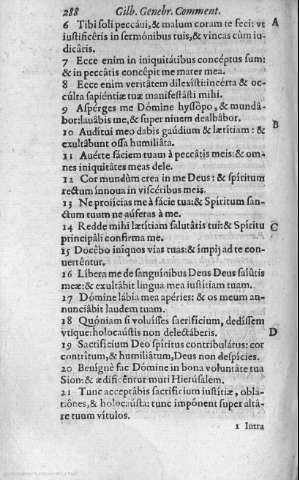 288 Gilb. Genebr. Comment.
6 Tibi soli peccáui, & malum coram te feci: vt A
iustificéris in sermónibus tuis, & vincas cùm iu-
dicáris.
7 Ecce enim in iniquitátibus concéptus sum:
& in peccátis concêpit me mater mea.
8 Ecce enim veritátem dilexisti: incérta & oc-
cúlta sapiéntiæ tuæ manifestásti mihi.
9 Aspérges me Dómine hyssôpo, & mundá-
bor: lauábis me, & super niuem dealbábor.
10 Auditui meo dabis gaúdium & lætitiam: & B
exultábunt ossa humiliáta.
11 Auérte fáciem tuam à peccátis meis: & om-
nes iniquitátes meas dele.
12 Cor mundùm crea in me Deus: & spíritum
rectum ínnoua in viscéribus meis.
13 Ne proiícias me à fácie tua: & Spíritum san-
ctum tuum ne aúferas à me.
14 Redde mihi lætítiam salutáris tui: & Spíritu C
principáli confirma me.
15 Docêbo iníquos vias tuas: & ímpij ad te con-
uerténtur.
16 Líbera me de sanguínibus Deus Deus salútis
meæ: & exultábit lingua mea iustítiam tuam.
17 Dómine lábia mea apéries: & os meum an-
nunciábit laudem tuam.
18 Quóniam si voluísses sacrifícium, dedíssem
vtique: holocaústis non delectáberis. D
19 Sacrifícium Deo spíritus contribulátus: cor
contrítum, & humiliátum, Deus non despícies.
20 Benígnè fac Dómine in bona voluntáte tua
Sion: & ædificéntur muri Hierúsalem.
21 Tunc acceptábis sacrifícium iustítiæ, obla-
tiônes, & holocaústa: tunc impónent super altá-
re tuum vítulos.
1 Intra